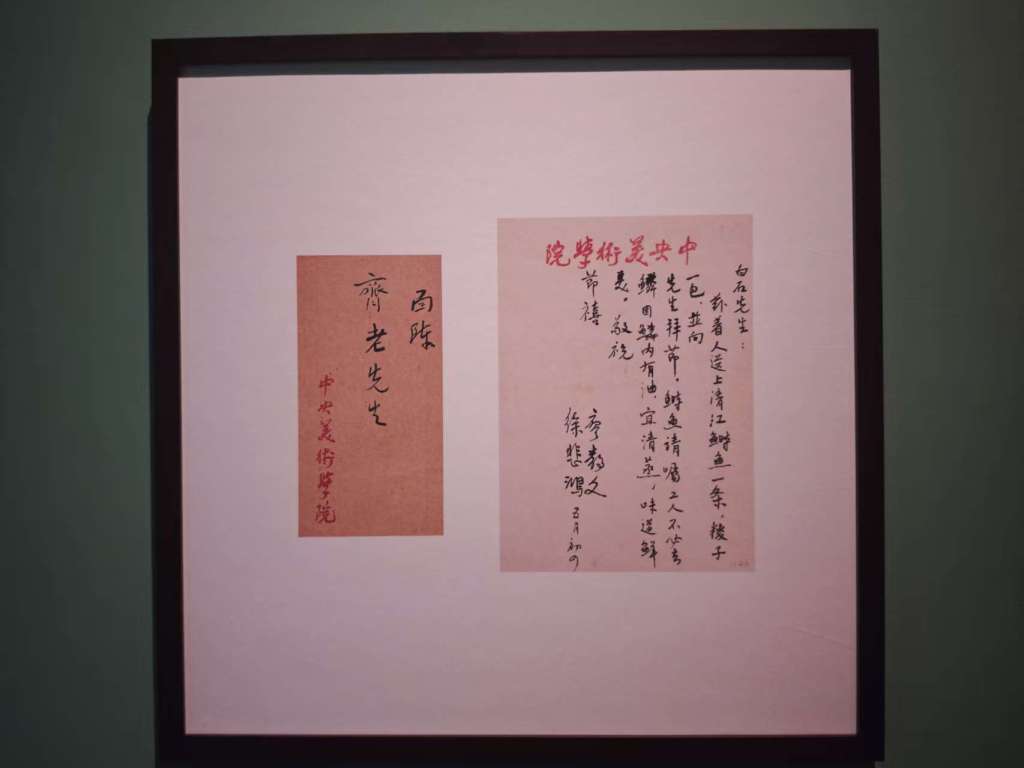 中央美術學院
白石先生:
兹着人送上清江鰣魚一条,糉子
一包,並向
先生拜節,鰣魚請嘱工人不必去
鱗因鱗内有油,宜清蒸,味道鮮
美。敬祝
節禧
廖静文
徐悲鴻 五月初四
面陳
齊老先生
中央美術學院